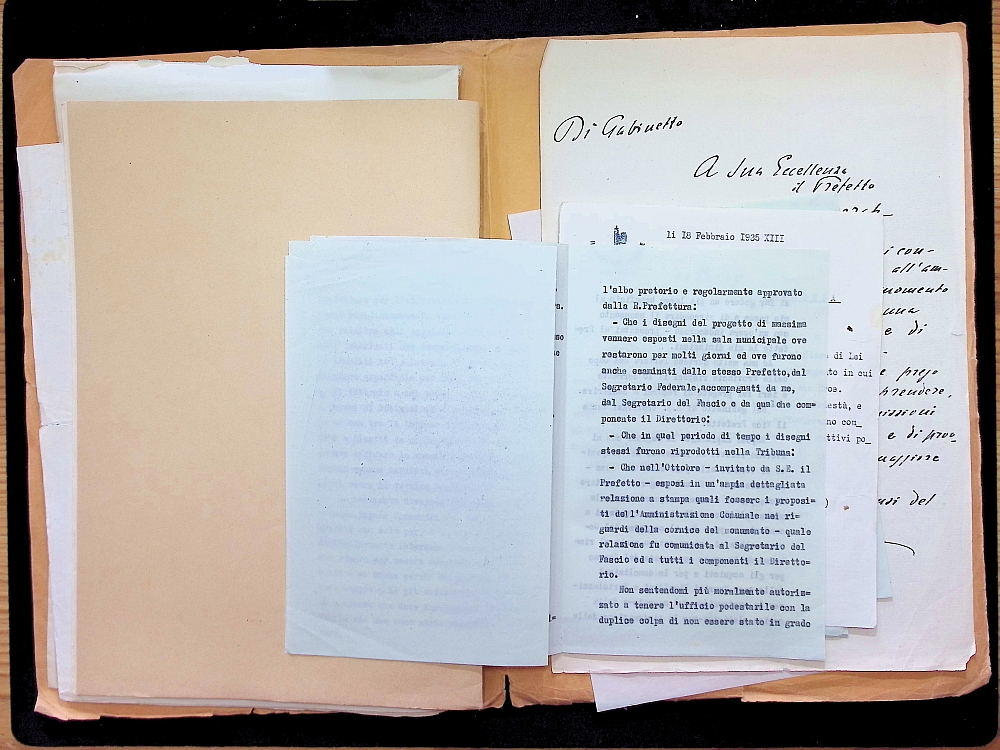 Di Gabinetto
A Sua Eccellenza
il Prefetto
li 18 Febbraio 1935 XIII
l'albo pretorio e regolarmente approvato
dalla R.Prefettura:
- Che i disegni del progetto di massima
vennero esposti nella sala municipale ove
restarono per molti giorni ed ove furono
anche esaminati dallo stesso Prefetto,dal
Segretario Federale,accompagnati da me,
dal Segretario del Fascio e da qualche com=
ponente il Direttorio:
- Che in quel periodo di tempo i disegni
stessi furono riprodotti nella Tribuna:
- Che nell'Ottobre - invitato da S.E. il
Prefetto - esposi in un'ampia dettagliata
relazione a stampa quali fossero i proposi=
ti dell'Amministrazione Comunale nei ri=
guardi della cornice del monumento - quale
relazione fu comunicata al Segretario del
Fascio ed a tutti i componenti il Diretto=
rio.
Non sentendomi più moralmente autoriz=
zato a tenere l'ufficio podestarile con la
duplice colpa di non essere stato in grado
i con-
all'am-
momento
e di
di Lei
to in cui
està, e
no con_
ttivi po_
e prego
prendere,
missioni
maggiore
del